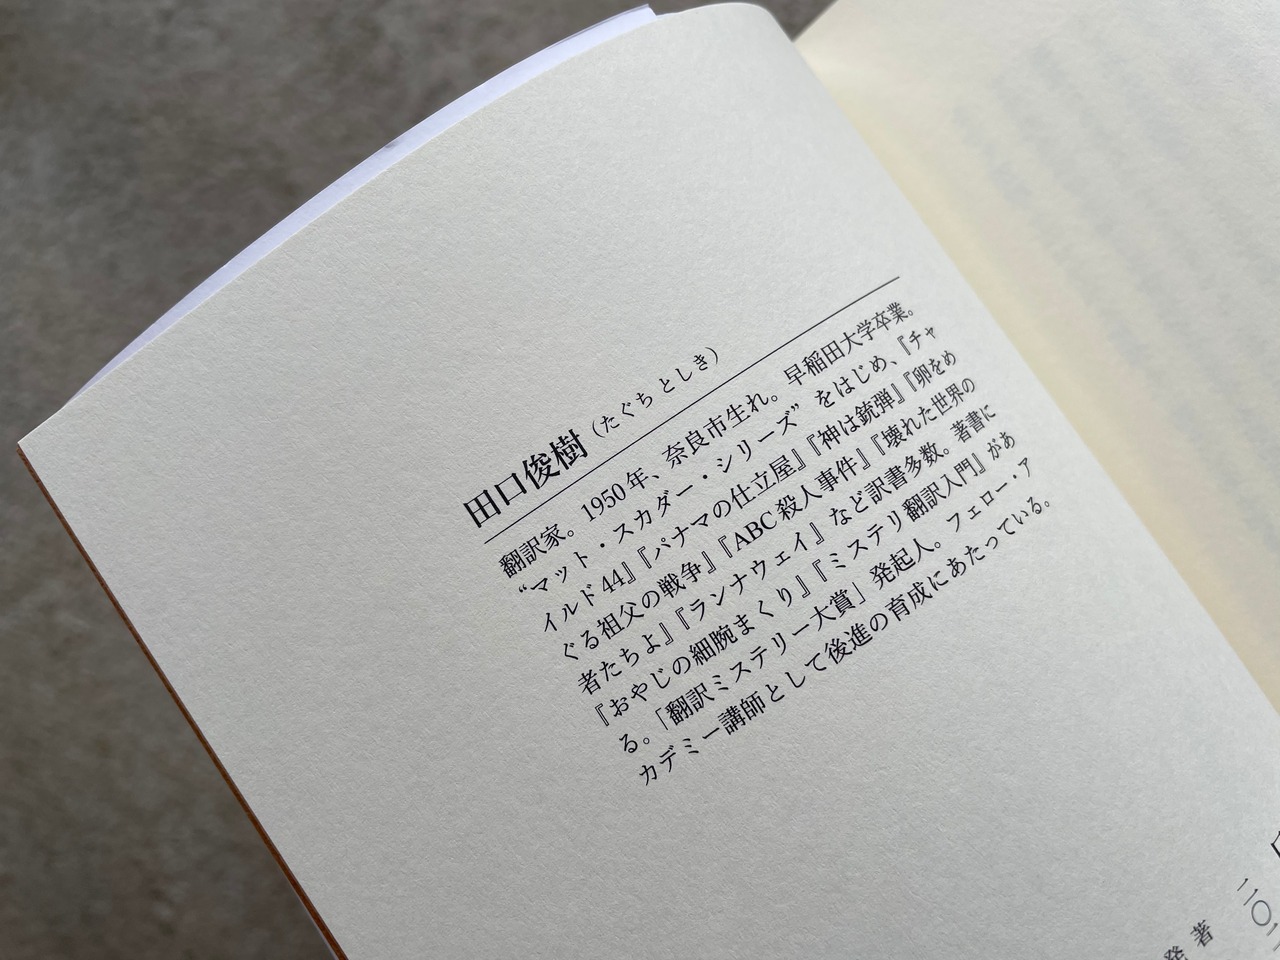 田口俊樹（たぐち としき）
翻訳家。1950年、奈良市生れ。早稲田大学卒業。
“マット・スカダー・シリーズ”をはじめ、『チャ
イルド44』『パナマの仕立屋』『神は銃弾』『卵をめ
ぐる祖父の戦争』『ABC殺人事件』『壊れた世界の
者たちよ』『ランナウェイ』など訳書多数。著書に
『おやじの細腕まくり』『ミステリ翻訳入門』があ
る。「翻訳ミステリー大賞」発起人。フェロー・ア
カデミー講師として後進の育成にあたっている。
二〇二
著
発